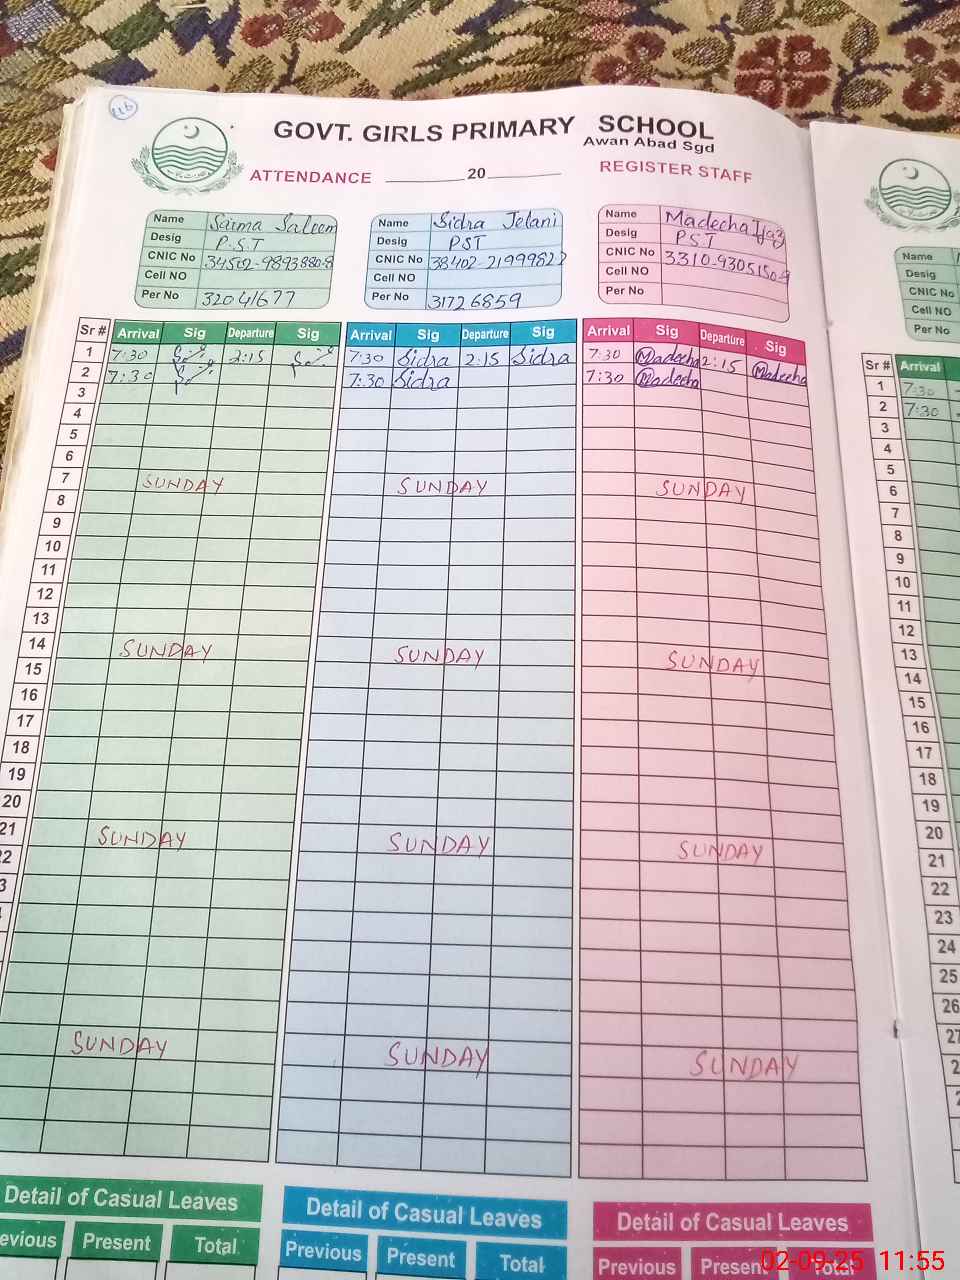 GOVT. GIRLS PRIMARY SCHOOL
Awan Abad Sgd
ATTENDANCE ________ 20 ________ REGISTER STAFF
Name Saima Saleem
Desig P.S.T
CNIC No
Cell NO
Per No 32041677
Name Sidra Jelani
Desig PST
CNIC No
Cell NO
Per No 31726859
Name Madeeha Ijaz
Desig PST
CNIC No
Cell NO
Per No
Name
Desig
CNIC No
Cell NO
Per No
Sr # Arrival Sig Departure Sig Arrival Sig Departure Sig Arrival Sig Departure Sig
1 7:30 2:15 7:30 Sidra 2:15 Sidra 7:30 Madeeha 2:15 Madeeha
2 7:30 7:30 Sidra 7:30 Madeeha
3
4
5
6
7 SUNDAY SUNDAY SUNDAY
8
9
10
11
12
13
14 SUNDAY SUNDAY SUNDAY
15
16
17
18
19
20
21 SUNDAY SUNDAY SUNDAY
SUNDAY SUNDAY SUNDAY
Sr # Arrival
1 7:30
2 7:30
3
4
5
6
7
8
9
10
11
12
13
14
15
16
17
18
19
20
21
22
23
24
25
26
27
Detail of Casual Leaves Detail of Casual Leaves Detail of Casual Leaves
Present Total Previous Present Total Previous Present Total
02-09-25 11:55